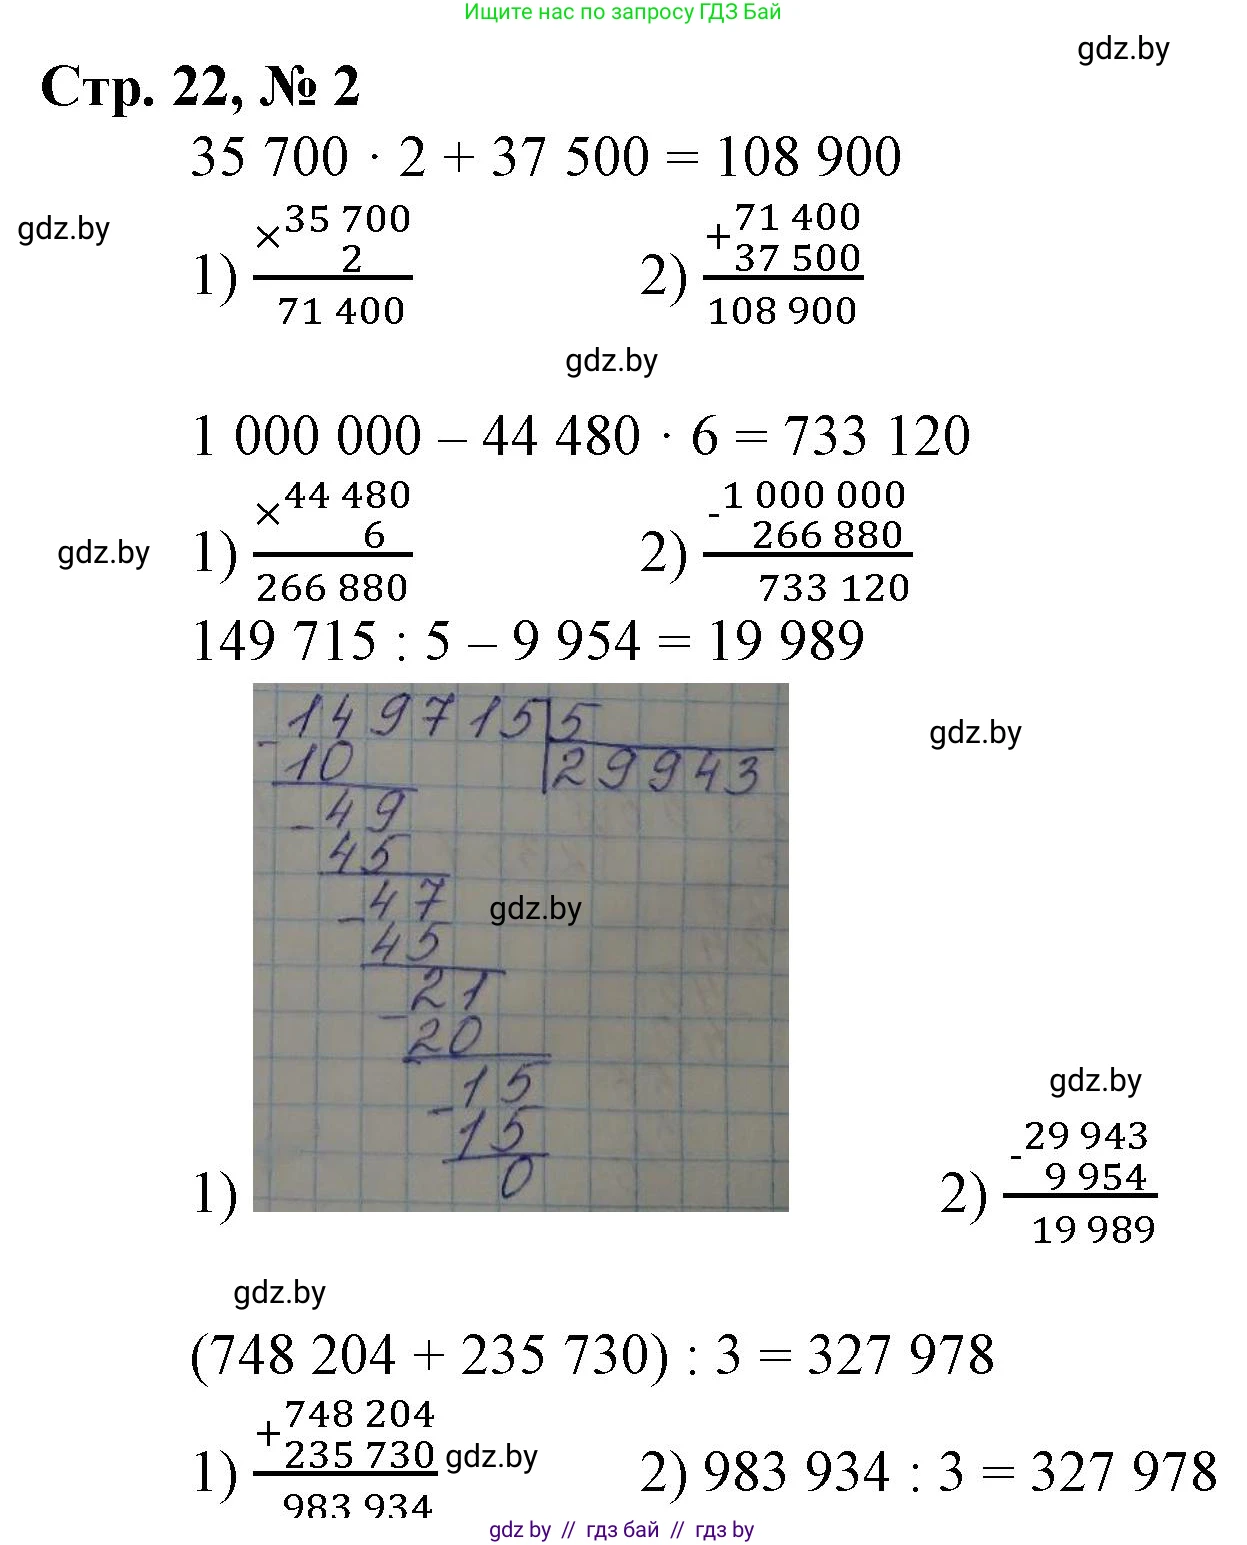 Ищите нас по запросу ГДЗ Бай
gdz.by
Стр. 22, № 2
35 700 · 2 + 37 500 = 108 900
gdz.by
1) ×35 700
2
71 400
2) +71 400
37 500
108 900
gdz.by
1 000 000 – 44 480 · 6 = 733 120
gdz.by
1) ×44 480
6
266 880
2) -1 000 000
266 880
733 120
149 715 : 5 – 9 954 = 19 989
gdz.by
1) 149715 5
-10 29943
-49
45
-47
45
gdz.by
-21
20
-15
15
0
gdz.by
2) -29 943
9 954
19 989
gdz.by
(748 204 + 235 730) : 3 = 327 978
1) +748 204
235 730
983 934
gdz.by
2) 983 934 : 3 = 327 978
gdz by // гдз бай // гдз by